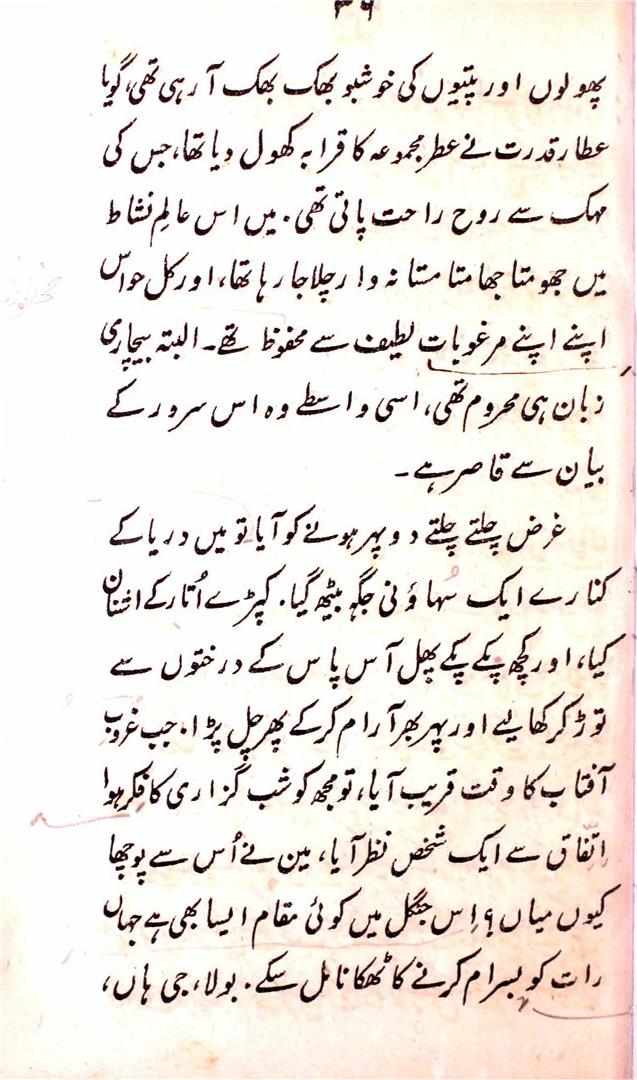 ۳۶
پھولوں اور پتیوں کی خوشبو بھک بھک آ رہی تھی، گویا
عطار قدرت نے عطر مجموعہ کا قرابہ کھول دیا تھا، جس کی
مہک سے روح راحت پاتی تھی. میں اس عالمِ نشاط
میں جھومتا جھامتا مستانہ وار چلا جا رہا تھا، اور کل حواس
اپنے اپنے مرغوبات لطیف سے محفوظ تھے۔ البتہ بیچاری
زبان ہی محروم تھی، اسی واسطے وہ اس سرور کے
بیان سے قاصر ہے۔
غرض چلتے چلتے دوپہر ہونے کو آیا تو میں دریا کے
کنارے ایک سُہاؤنی جگہ بیٹھ گیا. کپڑے اُتار کے اشنان
کیا، اور کچھ پکے پکے پھل آس پاس کے درختوں سے
توڑ کر کھا لیے اور پہر بھر آرام کر کے پھر چل پڑا. جب غروبِ
آفتاب کا وقت قریب آیا، تو مجھ کو شب گزاری کا فکر ہوا
اتفاق سے ایک شخص نظر آیا، مین نے اُس سے پوچھا
کیوں میاں؟ اِس جنگل میں کوئی مقام ایسا بھی ہے جہاں
رات کو بسرام کرنے کا ٹھکانا مل سکے. بولا، جی ہاں،